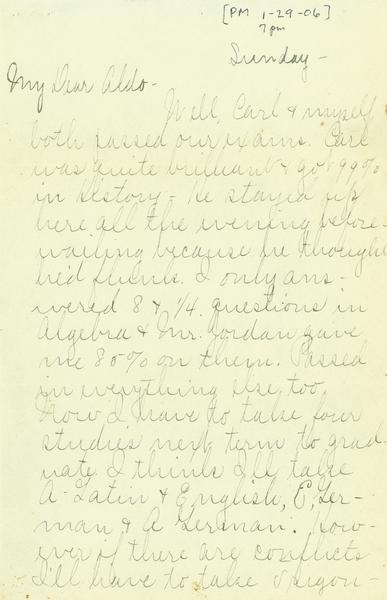 [PM 1-29-06]
7pm
Sunday -
My Dear Aldo -
Well, Carl & myself
both passed our exams. Carl
was quite brilliant & got 99%
in History - He stayed up
here all the evening before
wailing because he thought
he'd flunk. I only ans-
wered 8 & 1/4 questions in
Algebra & Mr. Jordan gave
me 80% on them. Passed
in everything else too.
Now I have to take four
studies next term to grad-
uate. I think I'll take
A-Latin & English, E, Ger-
man & A German. How-
ever if there are conflicts
I'll have to take